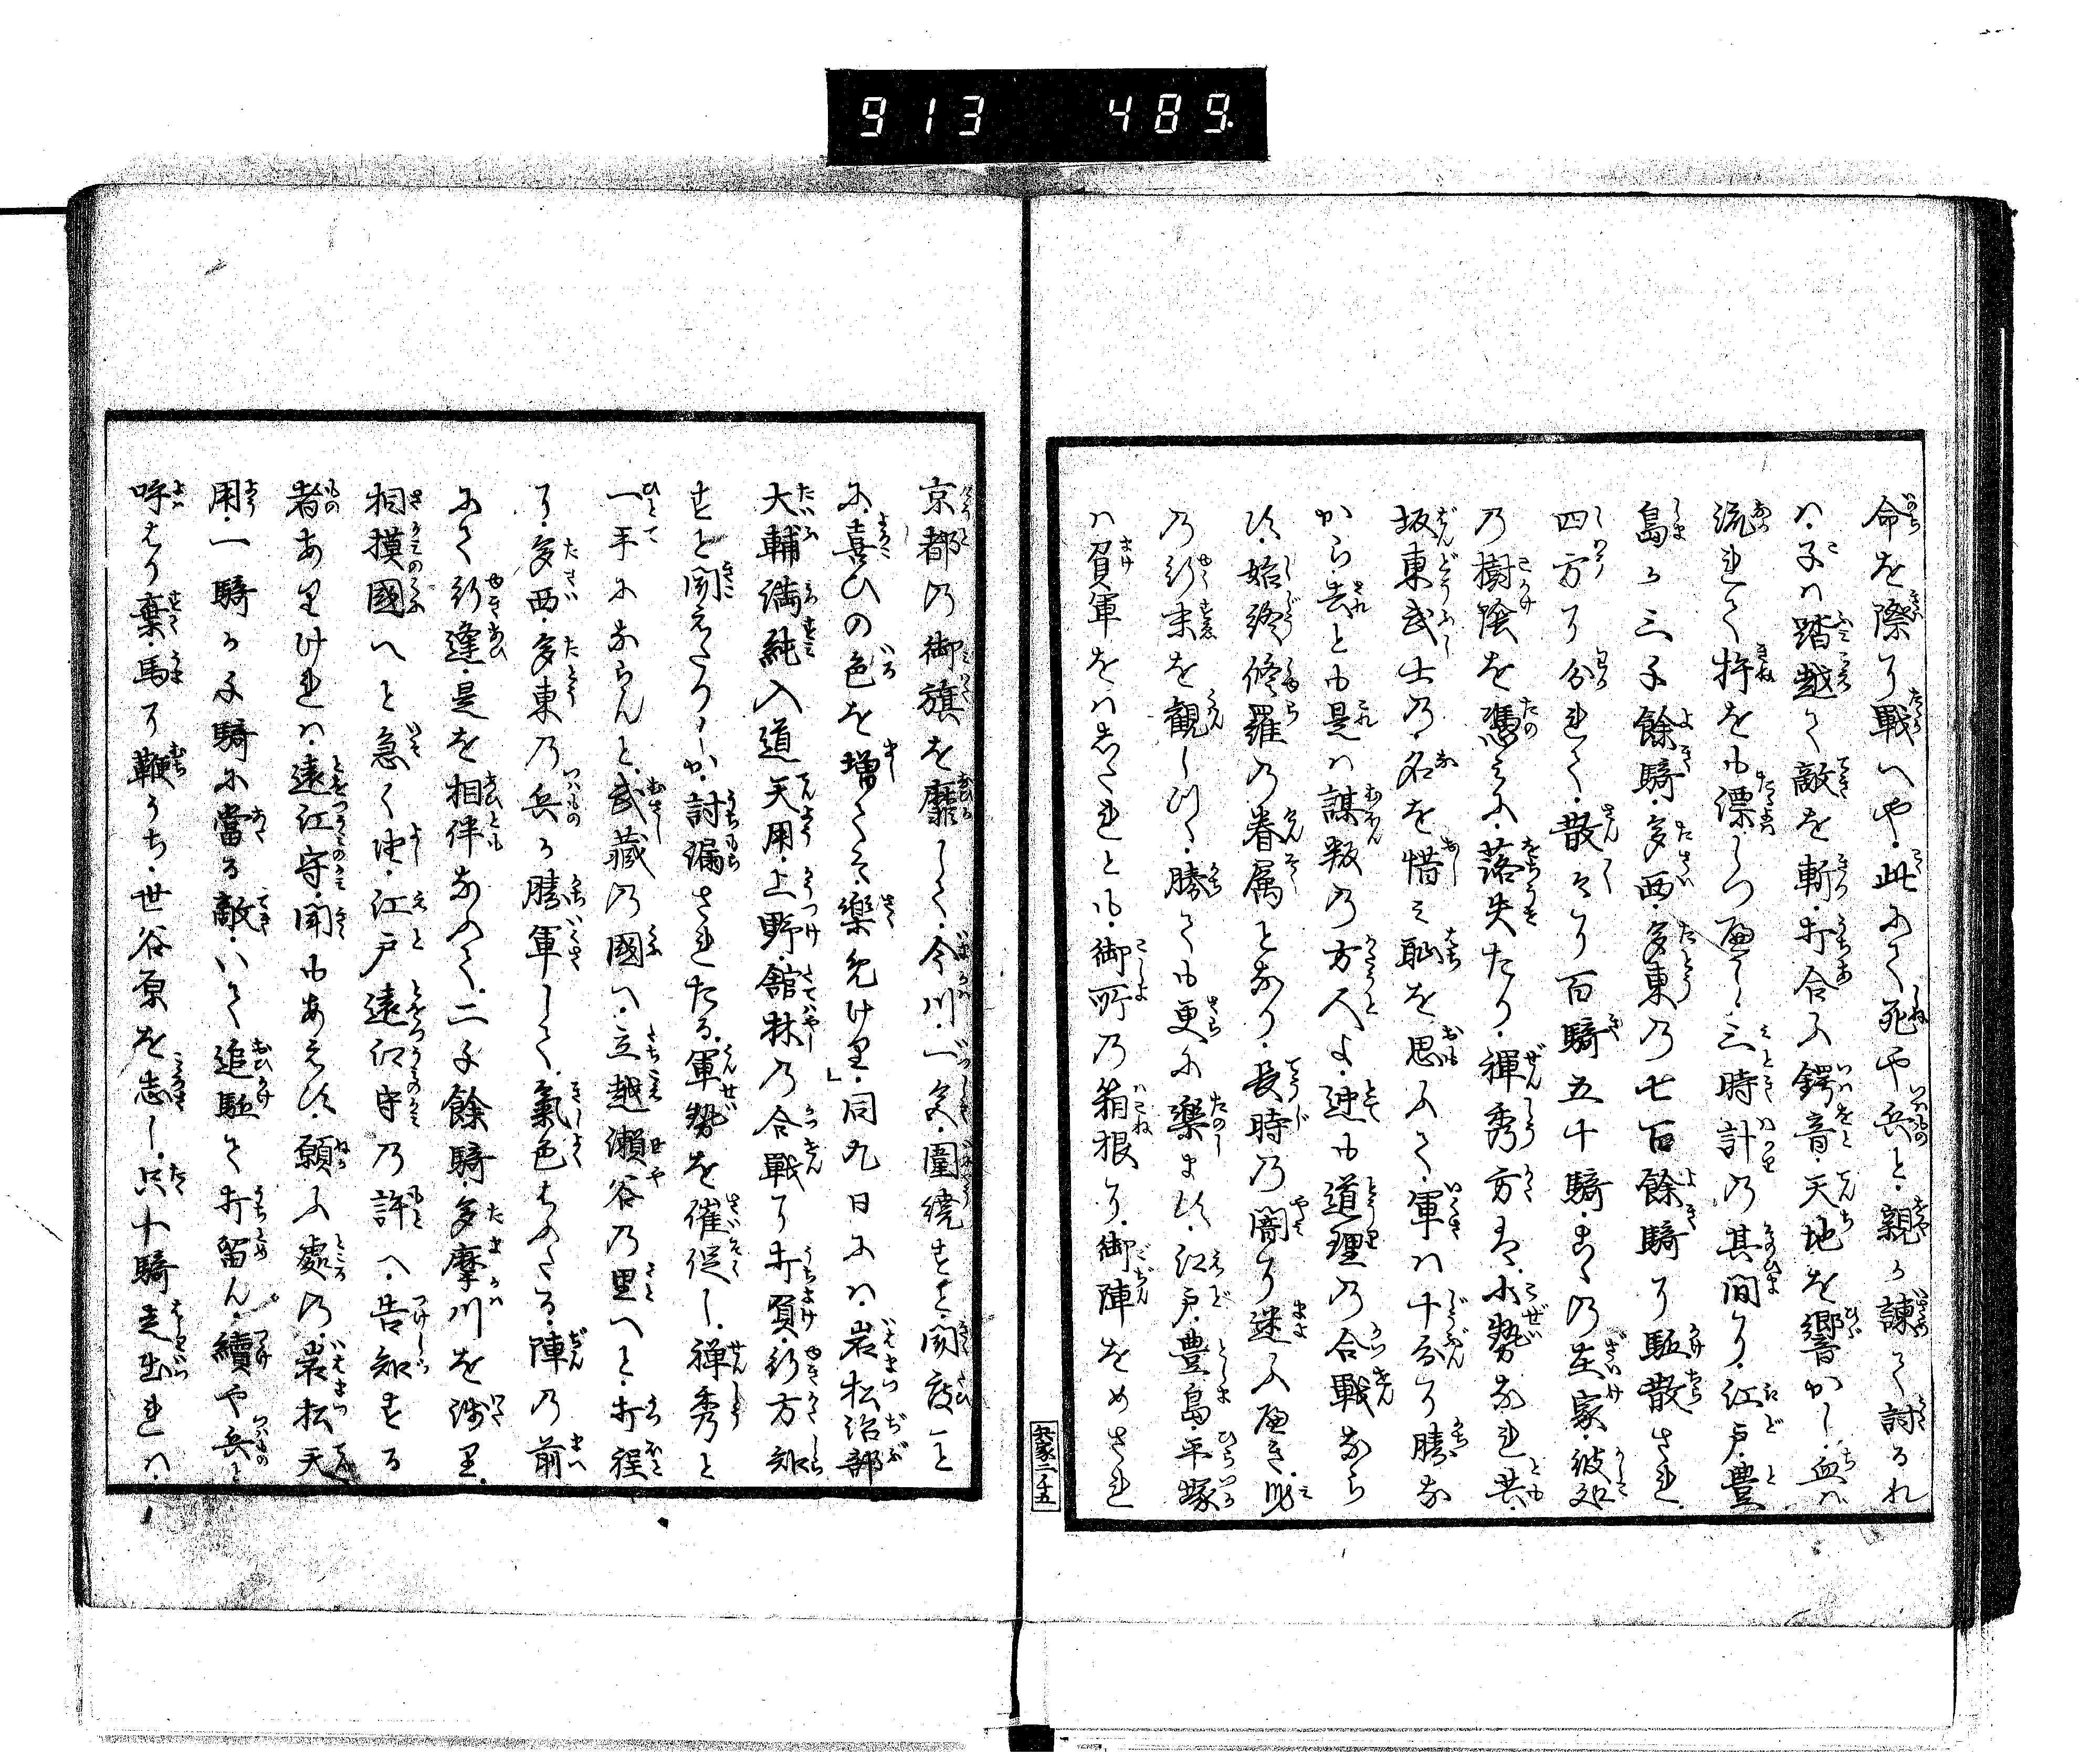 913 489.
命を際に戦へや・此にて死や兵と・親か諫て討るれ
ハ・子ハ踏越て敵を斬・打合ふ鍔音・天地を響かし・血ハ
流れて杵をも漂しつへし・三時計の其間に・江戸・豊
島か三千餘騎・多西多東の七百餘騎に駈散され
四方に分れて・散々に百騎五十騎・こゝの在家・彼処
の樹陰を憑みに・落失たり・禅秀方は・小勢なれ共・
坂東武士の・名を惜み恥を思ふて・軍ハ十分に勝な
から・去とも是ハ謀叛の方人よ・迚も道理の合戦なら
す・始終修羅の眷属となり・長時の闇に迷ふへき・
の行末を観しつゝ・勝ても更に楽ます・江戸・豊島・平塚
ハ負軍をハしたれとも・御所の箱根に・御陣をめされ
兵家二ノ十五
京都の御旗を靡して・今川・一色・圍繞すと・聞度」と
に・喜ひの色を増てそ・楽免けり」・同九日にハ・岩松治部
大輔満純入道天用・上野・舘林の合戦に打負・行方知
すと聞えたりしか・討漏されたる・軍勢を催促し・禅秀と
一手にならんと・武藏の國へ・立越瀬谷の里へと・打程
に・多西・多東の兵か勝軍して・氣色ちめたる・陣の前
にて行逢・是を相伴なふて・二千餘騎・多摩川を渉り・
相摸國へと急く由・江戸遠江守の許へ・告知する
者ありけれハ・遠江守・聞もあえす・願ふ處の・岩松天
用・一騎か千騎に當る敵・いて追駈て打留ん・續や兵と
呼はり棄・馬に鞭うち・世谷原を志し・只十騎走出れハ・